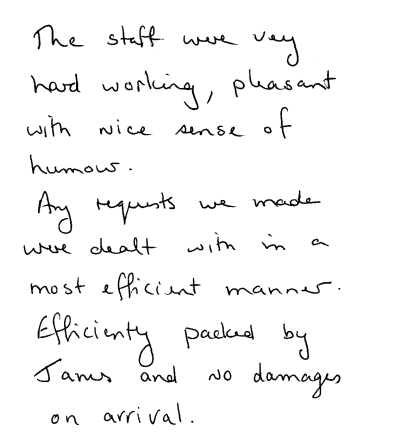 The staff were very
hard working, pleasant
with nice sense of
humour.
Any requests we made
were dealt with in a
most efficient manner.
Efficiently packed by
James and no damages
on arrival.